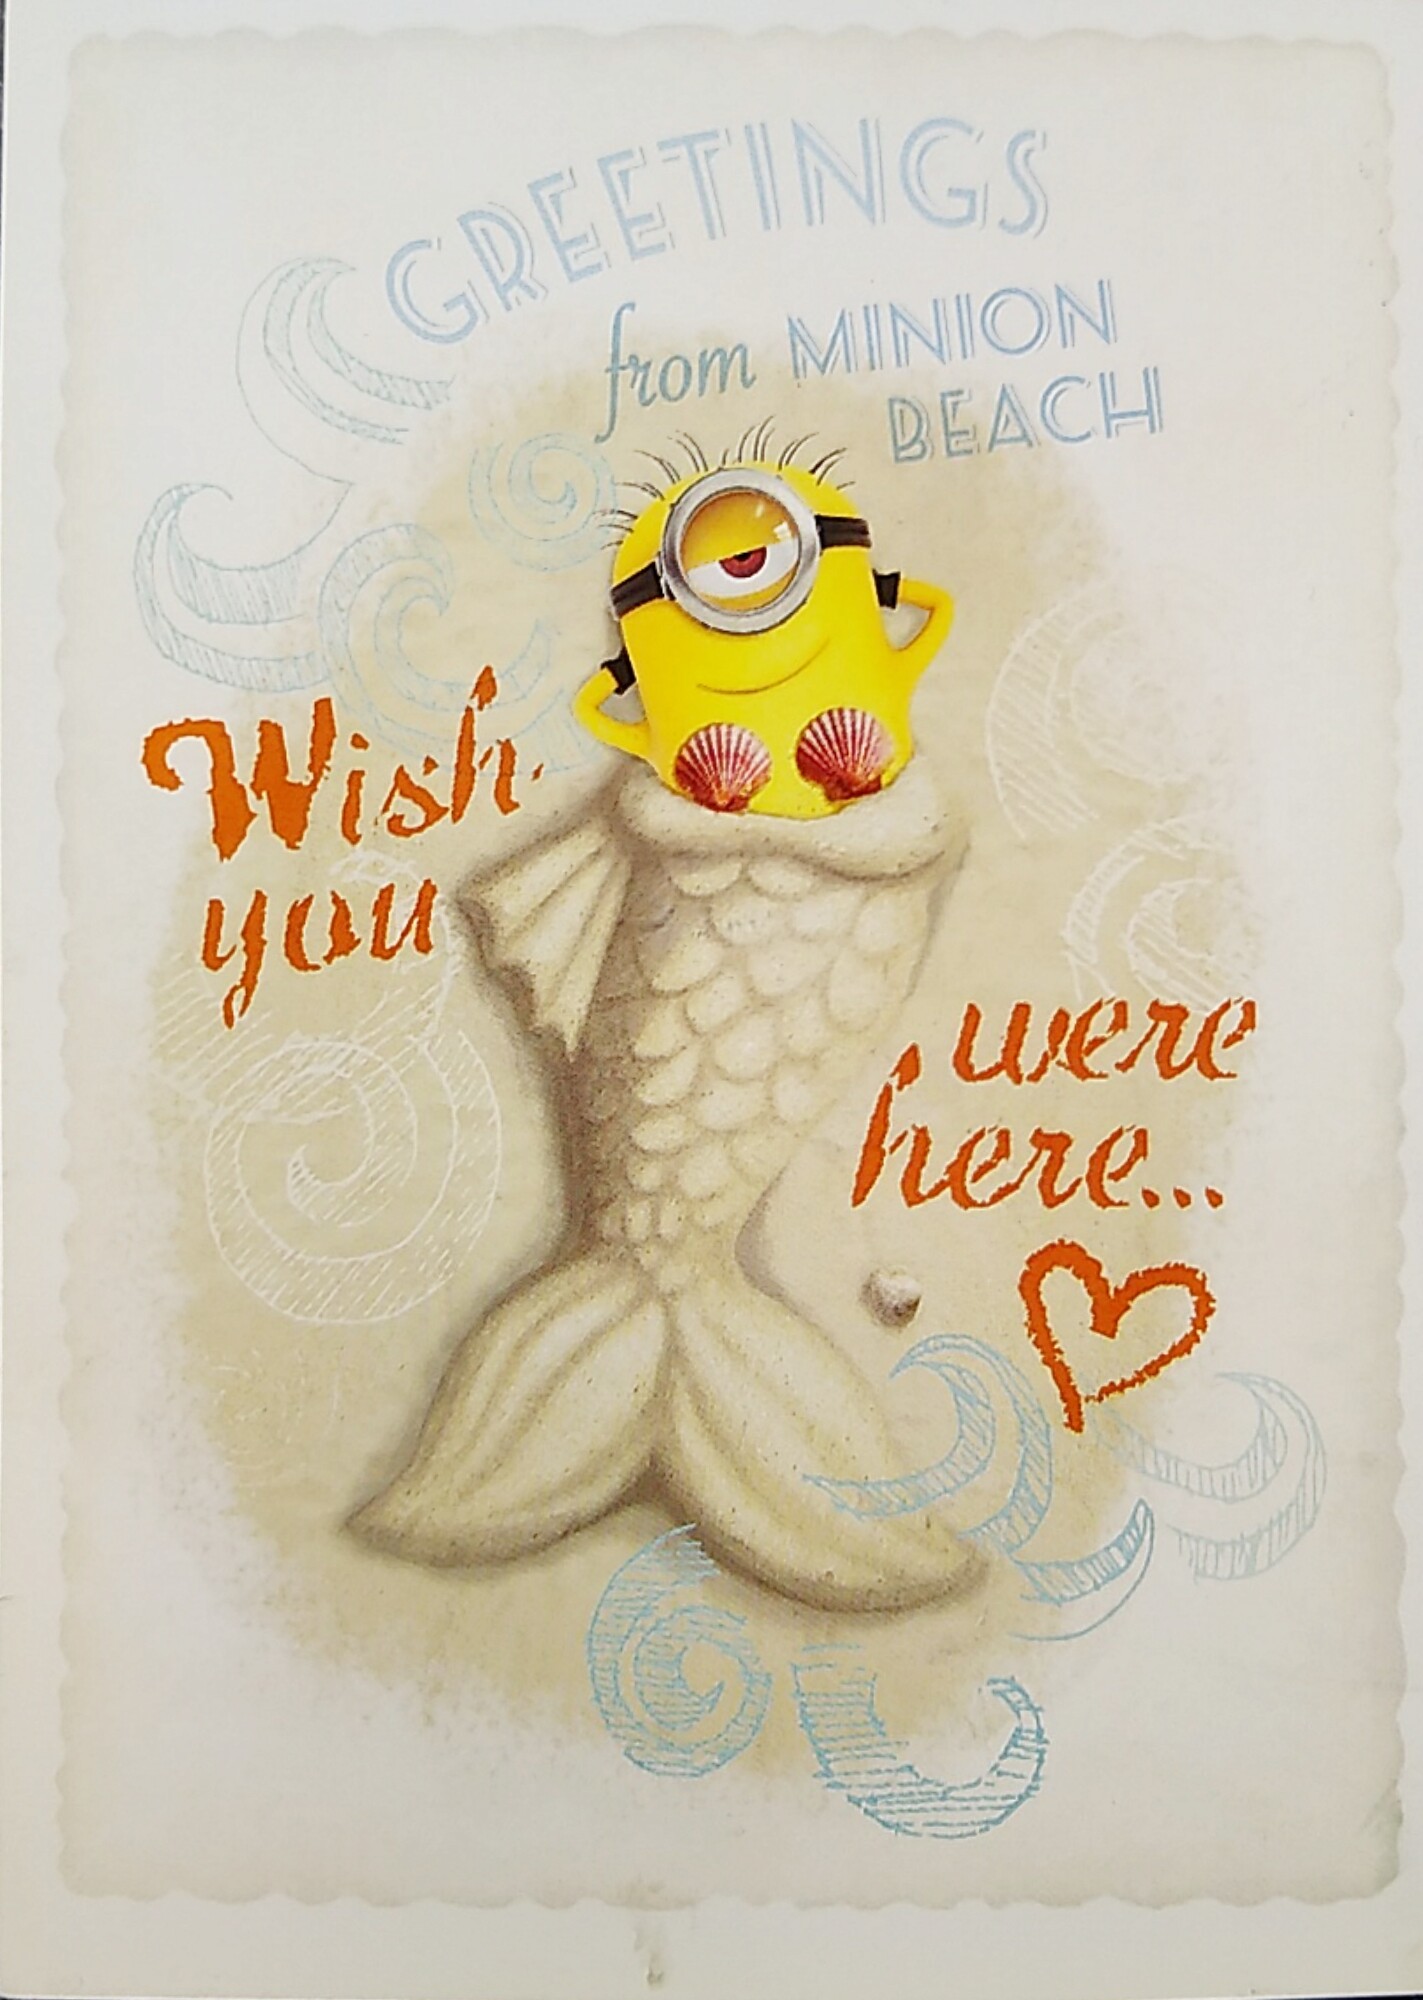 GREETINGS
from MINION
BEACH
Wish
you
were
here...